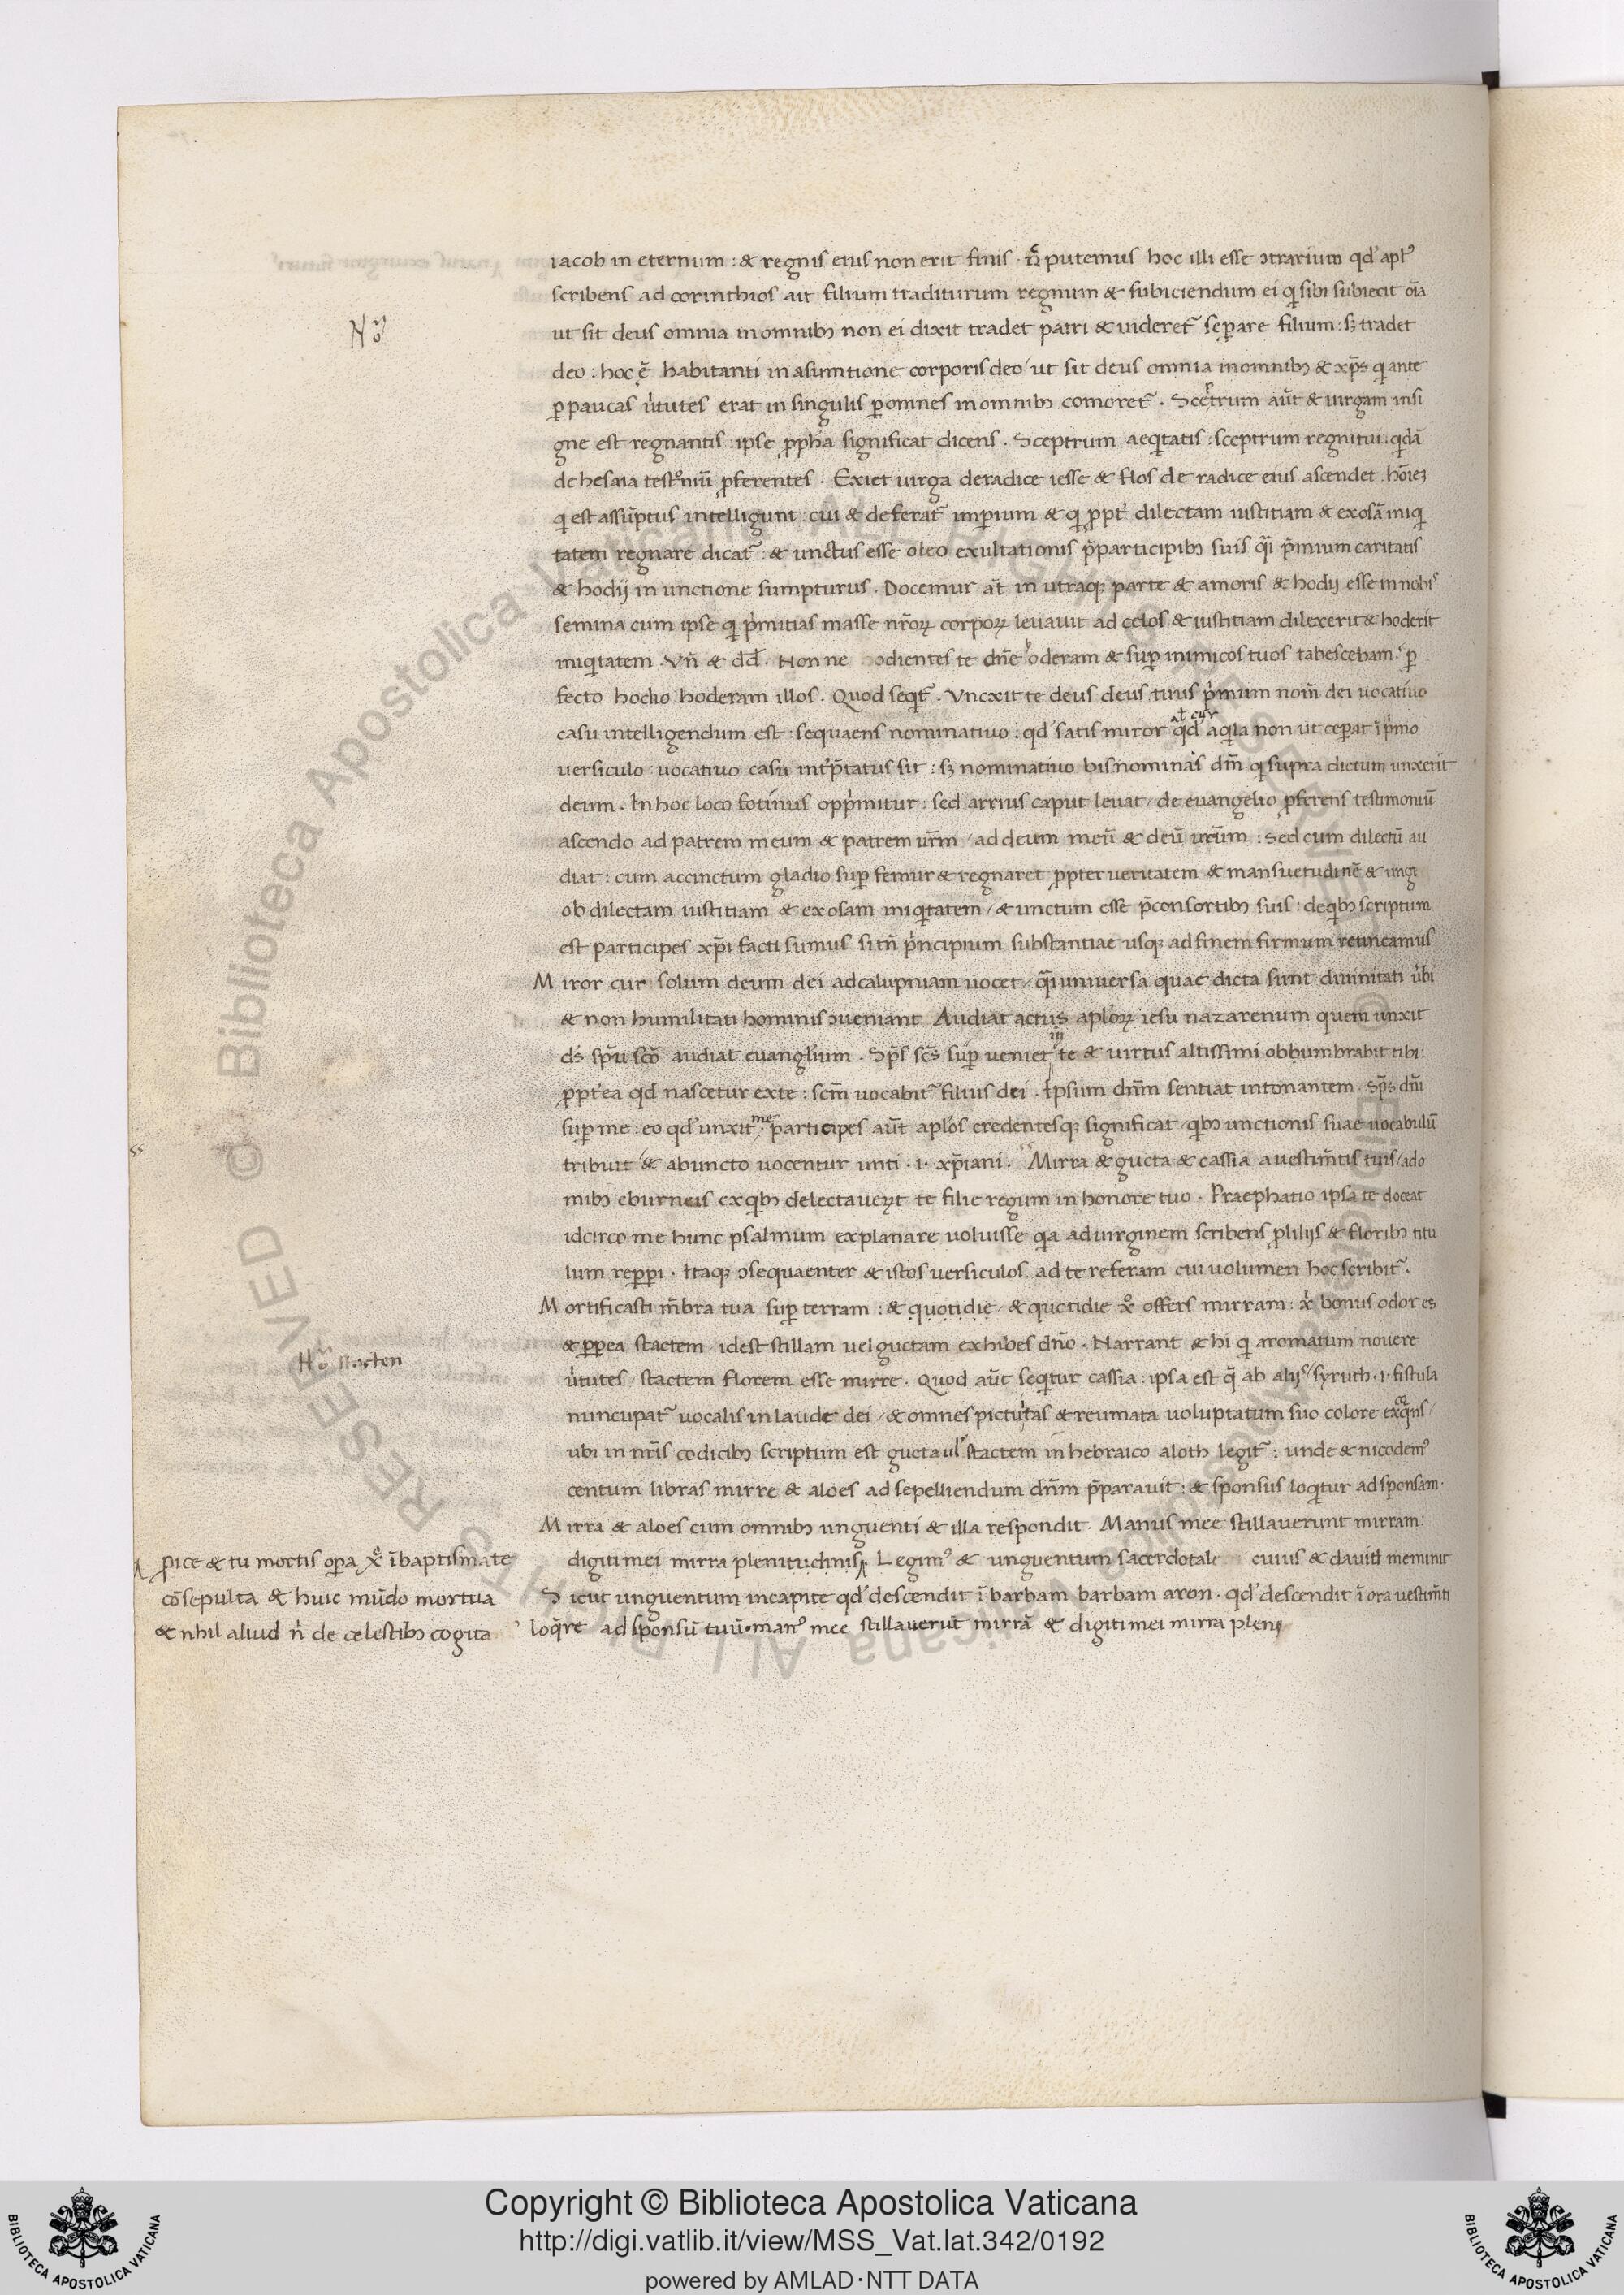 iacob in eternum : & regnis eius non erit finis . n̄ putemus hoc illi esse ɔtrarium qd' apl'ꝰ
scribens ad corinthios ait filium traditurum regnum & subiciendum ei q̇ sibi subiecit oīa
Nō
ut sit deus omnia in omnibꝫ non ei dixit tradet patri & uideret᷑ seꝑare filium : sꝫ tradet
deo : hoc ē habitanti in asumtione corporis deo / ut sit deus omnia in omnibꝫ & xp̄s q̇ ante
ꝑ paucas u̇tutes erat in singulis ꝑ omnes in omnibꝫ comoret᷑ . Sceptrum aūt & uirgam insi
gne est regnantis : ipse ꝓph̄a significat dicens . Sceptrum aeq̇tatis : sceptrum regni tui : q̇dā
de hesaia testīoniū ꝓferentes . Exiet uirga de radice iesse & flos de radice eius ascendet . hōieꝫ
q̇ est assūptus intelligunt : cui & deferat᷑ imꝑium & q̇ ꝓpt' dilectam iustitiam & exosā iniq̇
tatem regnare dicat᷑ : & unctus esse oleo exultationis p̄ participibꝫ suis q̄i p̄mium caritatis
& hodij in unctione sumpturus . Docemur āt in utraqꝫ parte & amoris & hodij esse in nobis
semina cum ipse q̇ ṗmitias masse nr̄oꝝ corpoꝝ leuauit ad celos & iustitiam dilexerit & hoderit
iniq̇tatem . Vn̄ & dd̄ . Nonne odientes te dn̄e oderam & suꝑ inimicos tuos tabescebam . ꝑ
fecto hodio hoderam illos . Quod seqt᷑ . Vncxit te deus deus tuus ṗmum nom̄ dei uocatiuo
casu intelligendum est : sequaens nominatiuo : qd' satis miror qd' aq̇la non ut ceꝑat ī ṗmo
ał cur
uersiculo : uocatiuo casu int'p̄tatus sit : sꝫ nominatiuo bis nominās dm̄ q̇ supra dictum unxerit
deum . In hoc loco fotinus opṗmitur : sed arrius caput leuat / de euangelio ꝓferens testimoniū
ascendo ad patrem meum & patrem ur̄m / ad deum meū & deū urūm : Sed cum dilectū au
diat : cum accinctum gladio suꝑ femur & regnaret ꝓpter ueritatem & mansuetudinē & ungi
ob dilectam iustitiam & exosam iniq̇tatem / & unctum esse p̄ consortibꝫ suis : de q̇bꝫ scriptum
est participes xp̄i facti sumus si tn̄ ṗncipium substantiae usqꝫ ad finem firmum retineamus
Miror cur solum deum dei ad calupniam uocet / q̄i uniuersa quae dicta sunt diuinitati u̇bi
& non humilitati hominis ɔueniant Audiat actus apl'oꝝ iesu nazarenum quem unxit
ds̄ sp̄u sc̄o audiat euanglium . Sp̄s sc̄s suꝑ ueniet in te & uirtus altissimi obbumbrabit tibi :
ꝓpt'ea qd' nascetur ex te : scm̄ uocabit᷑ filius dei . Ipsum dn̄m sentiat intonantem . Sp̄s dn̄i
suꝑ me : eo qd' unxit me . participes aūt apl'os credentesqꝫ significat / q̇bꝫ unctionis suae uocabulū
tribuit / & ab uncto uocentur unti . i . xp̄iani . Mirra & gucta & cassia a uestim̄tis tuis / a do
mibꝫ eburneis ex q̇bꝫ delectauer̄t te filie regum in honore tuo . Praephatio ipsa te doceat
idcirco me hunc psalmum explanare uoluisse q̇a ad uirginem scribens ꝓ lilijs & floribꝫ titu
lum reꝑpi . Itaqꝫ ɔsequaenter & istos uersiculos ad te referam cui uolumen hoc scribit᷑ .
Mortificasti m̄bra tua suꝑ terram : & quotidie / & quotidie xo offers mirram : xi bonus odor es
& ꝓꝑea stactem idest stillam uel guctam exhibes dn̄o . Narrant & hi q̇ aromatum nouere
u̇tutes / stactem florem esse mirre . Quod aūt seq̇tur cassia : ipsa est q̄ ab alijs / syruth . i . fistula
nuncupat᷑ uocalis in laude dei / & omnes pictuitas & reumata uoluptatum suo colore exq̄ns /
ubi in nr̄is codicibꝫ scriptum est gucta ul' stactem in hebraico aloth legit᷑ : unde & nicodem'
centum libras mirre & aloes ad sepelliendum dn̄m p̄parauit : & sponsus loq̇tur ad sponsam .
Mirra & aloes cum omnibꝫ unguenti & illa respondit . Manus mee stillauerunt mirram :
digiti mei mirra plenitudinis . Legim' & unguentum sacerdotale cuius & dauid meminit
Sicut unguentum in capite qd' descendit ī barbam barbam aron . qd' descendit ī ora uestim̄ti
loq̄re ad sponsū tuū . man' mee stillauerūt mirrā & digiti mei mirra pleni
ꝓice & tu mortis oꝑa xo ī baptismate
cōsepulta & huic mūdo mortua
& nhil aliud n' de celestibꝫ cogita